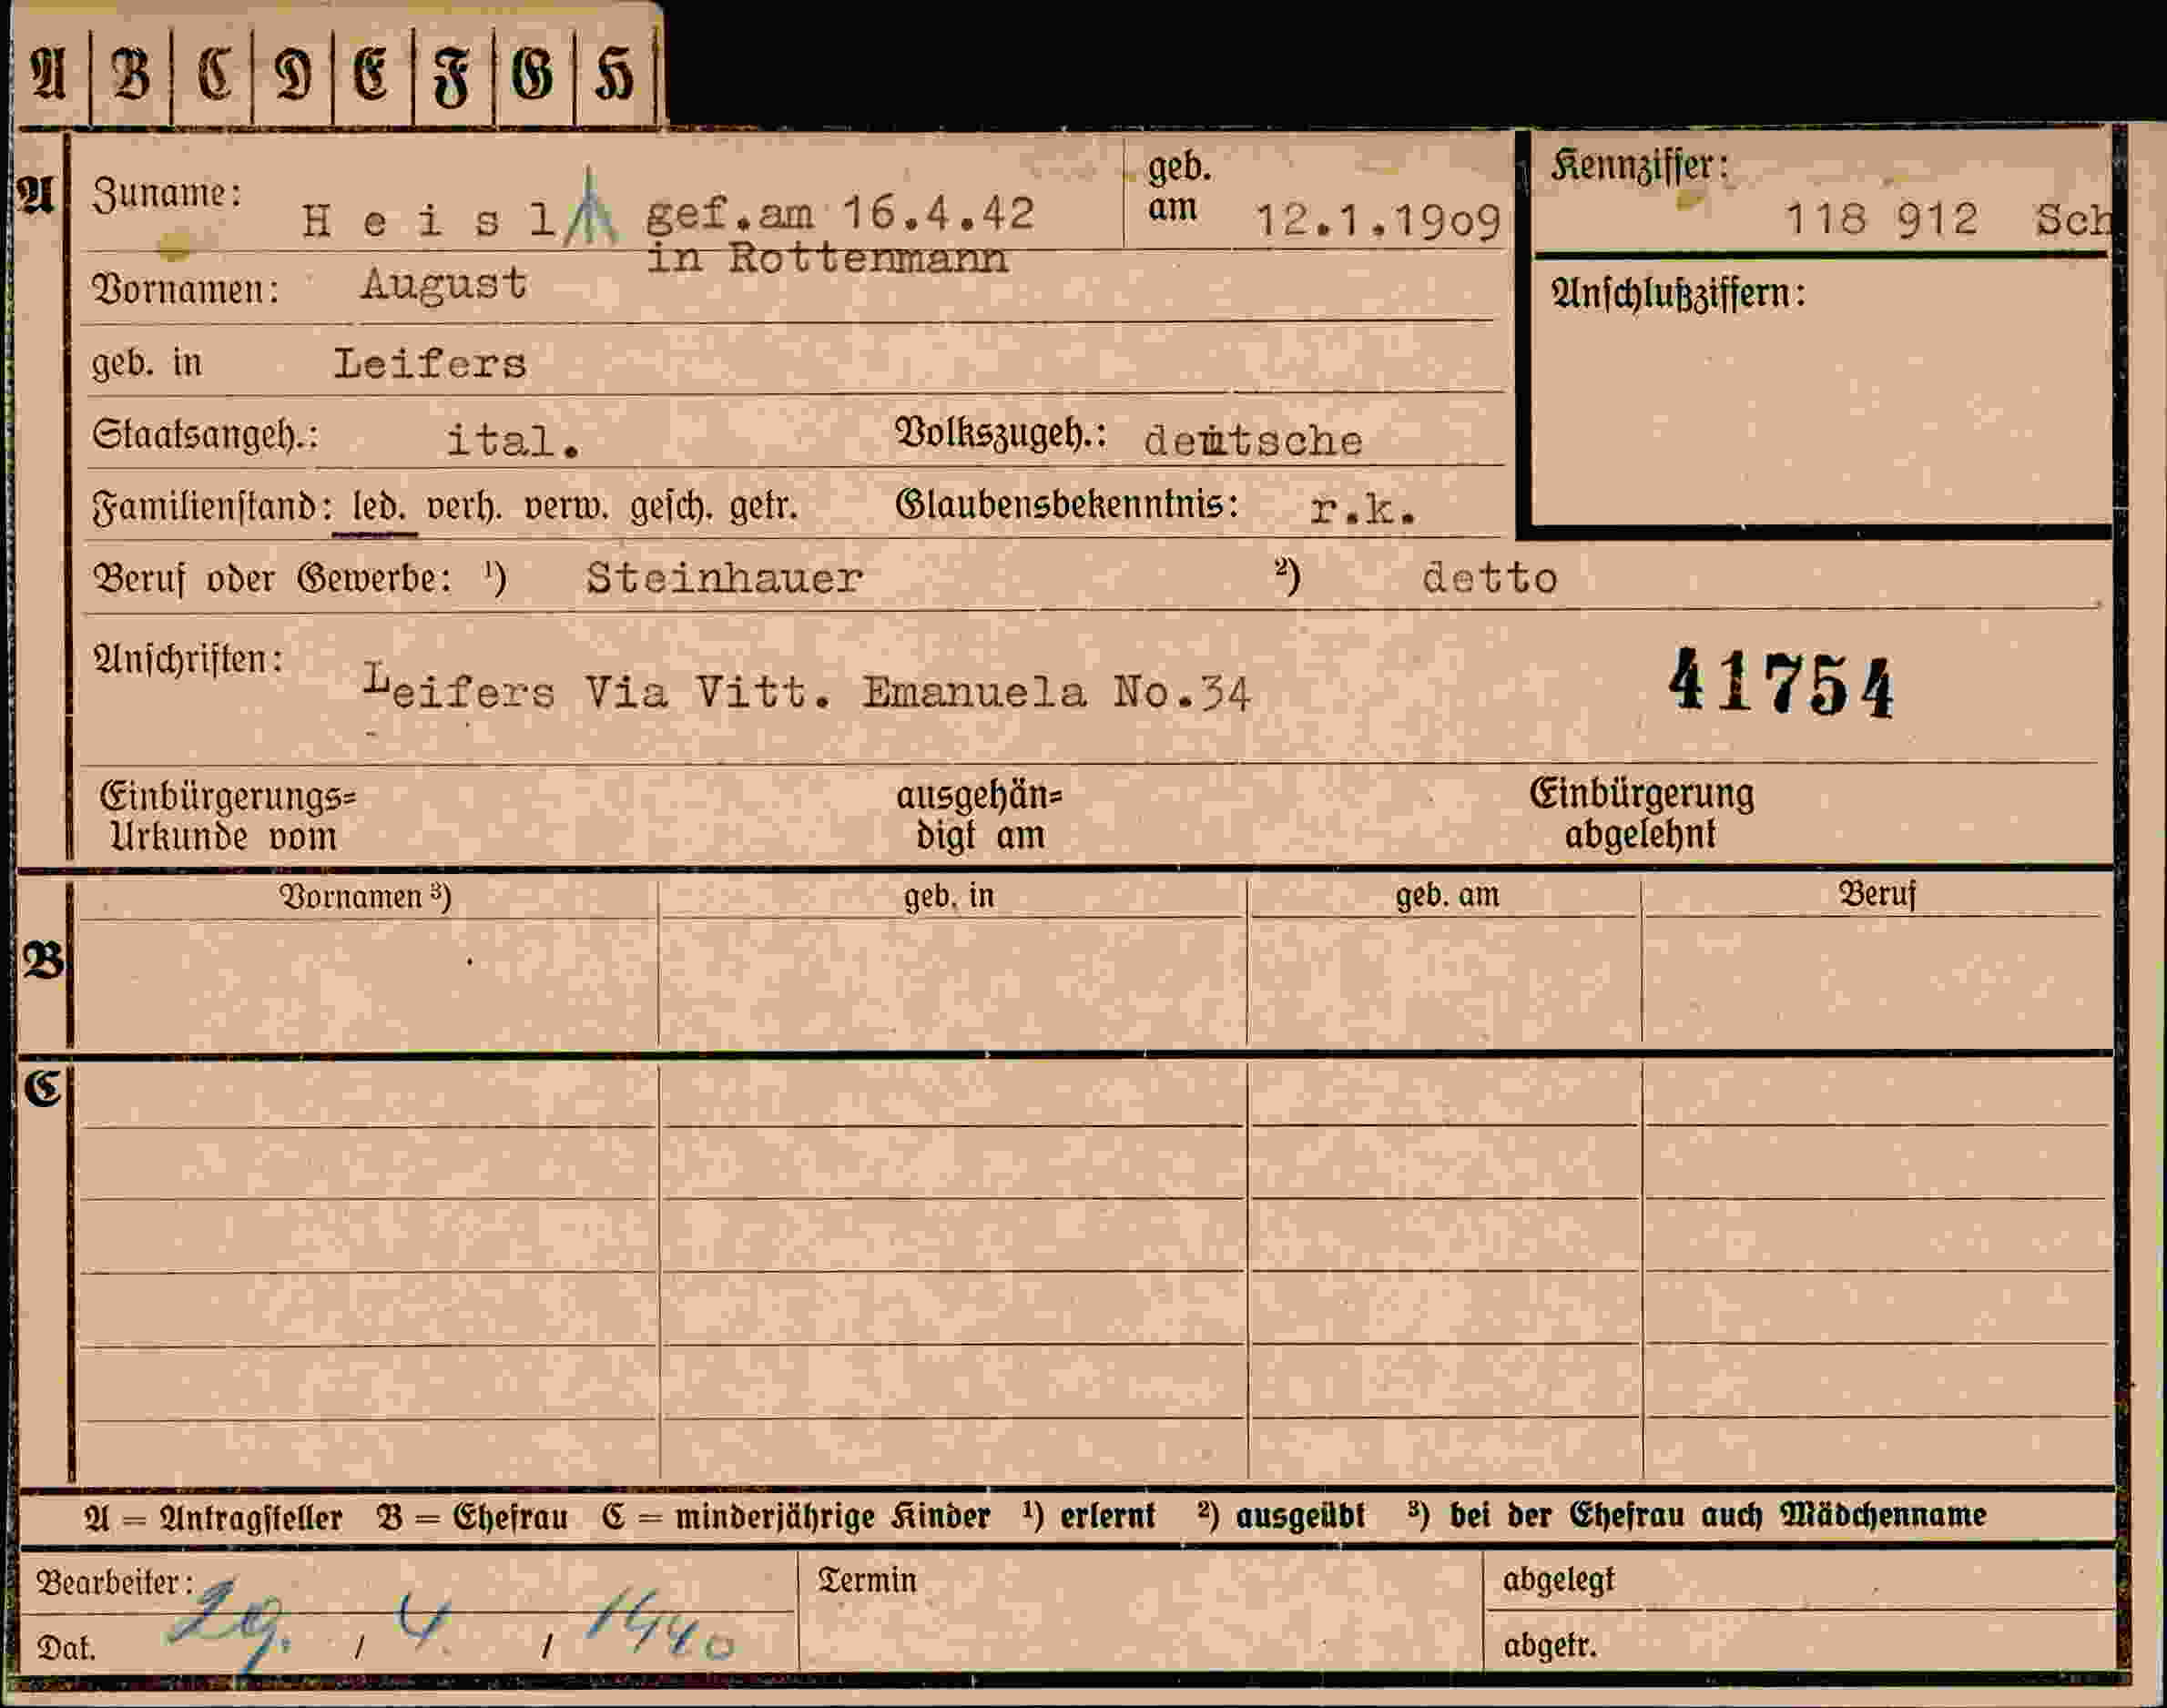 A B C D E F G H
A Zuname: Heisl gef.am 16.4.42 geb. am 12.1.1909 Kennziffer: 118 912 Sch
in Rottenmann
Vornamen: August Anschlußziffern:
geb. in Leifers
Staatsangeh.: ital. Volkszugeh.: deutsche
Familienstand: led. verh. verw. gesch. getr. Glaubensbekenntnis: r.k.
Beruf oder Gewerbe: ¹) Steinhauer ²) detto
Anschriften: Leifers Via Vitt. Emanuela No.34 41754
Einbürgerungs= ausgehän= Einbürgerung
Urkunde vom digt am abgelehnt
Vornamen ³) geb. in geb. am Beruf
B
C
A = Antragsteller B = Ehefrau C = minderjährige Kinder ¹) erlernt ²) ausgeübt ³) bei der Ehefrau auch Mädchenname
Bearbeiter: Termin abgelegt
Dat. 29. / 4. / 1940 abgetr.